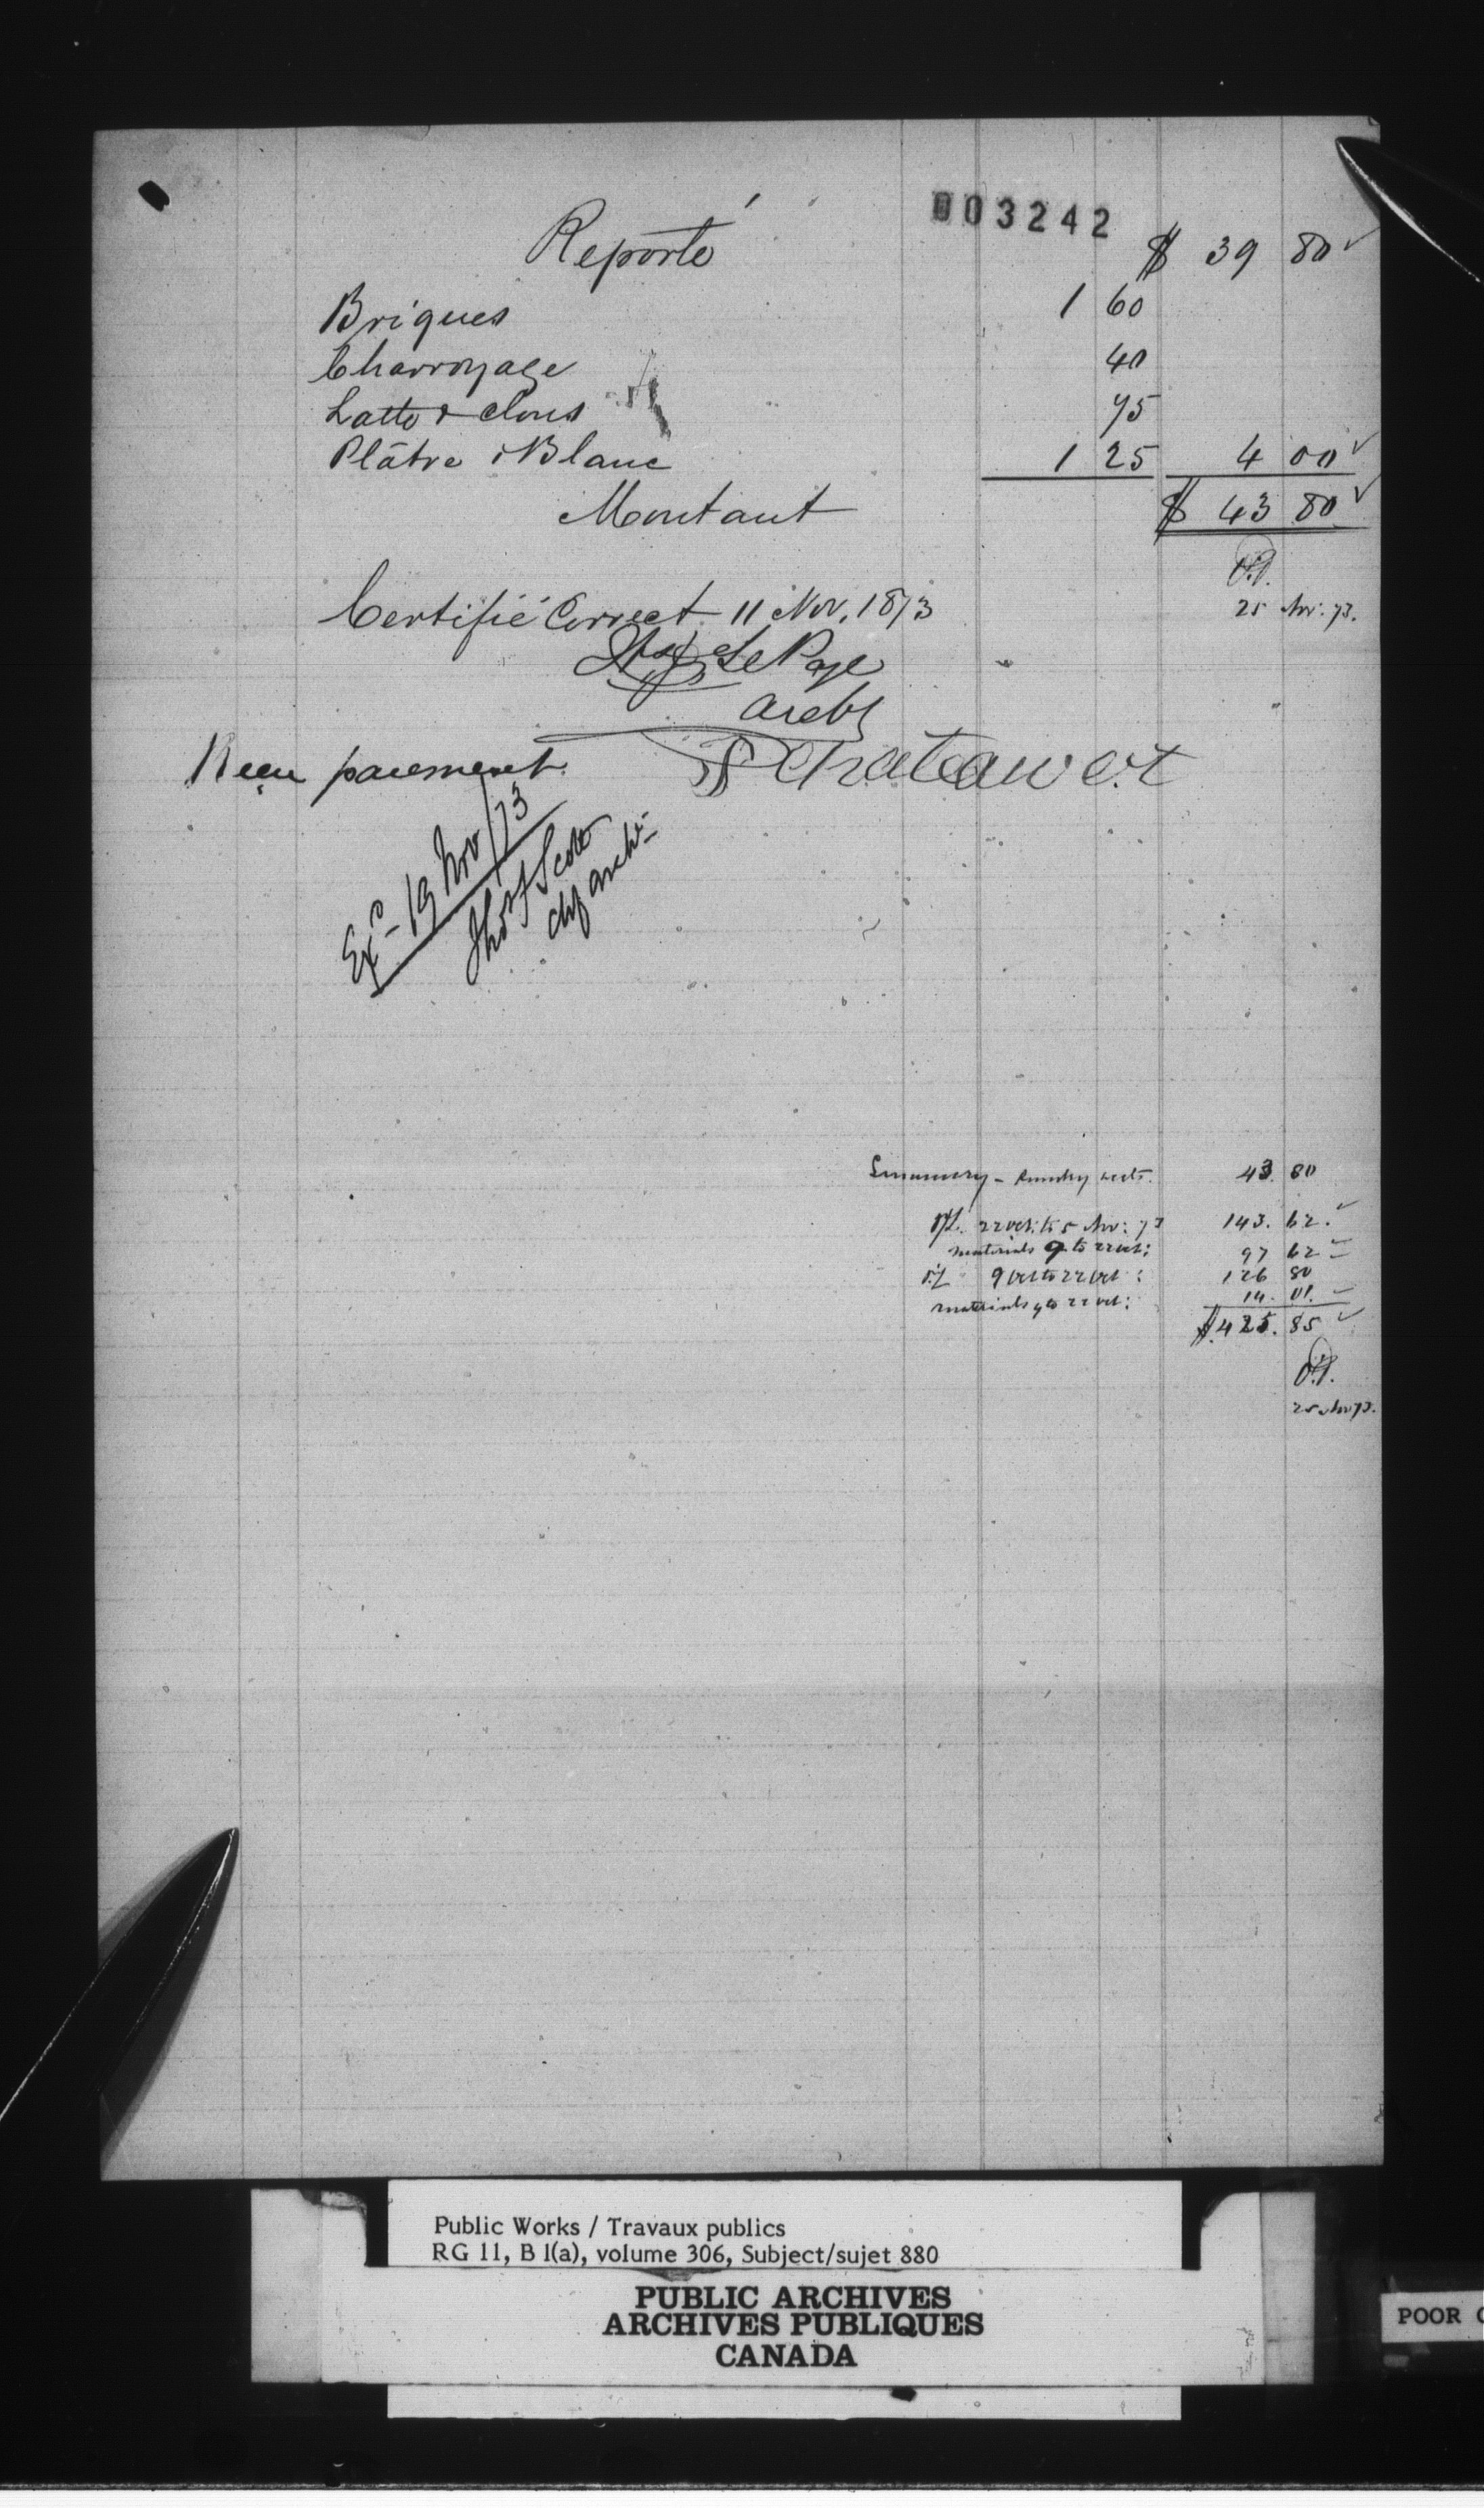 003242
Reporté $ 39 80
Briques 1 60
Charroyage 40
Latte & clous 75
Plâtre & Blanc 1 25 4 00
Montant $ 43 80
Certifié Correct 11 Nov. 1873
25 Nov. 73.
LePage
Archt
Reçu paiement P Chateauvert
Exd 19 Nov/73
Thos S Scott
chf archt
Summary - Sundry accts. 43 80
P/L. 22 Oct. to 5 Nov: 73 143. 62.
materials 9 to 22 Oct: 97 62
P/L 9 Oct to 22 Oct: 126 80
materials 9 to 22 Oct: 14. 01.
$ 425. 85
25 Nov 73.
Public Works / Travaux publics
RG 11, B 1(a), volume 306, Subject/sujet 880
PUBLIC ARCHIVES
ARCHIVES PUBLIQUES
CANADA
POOR